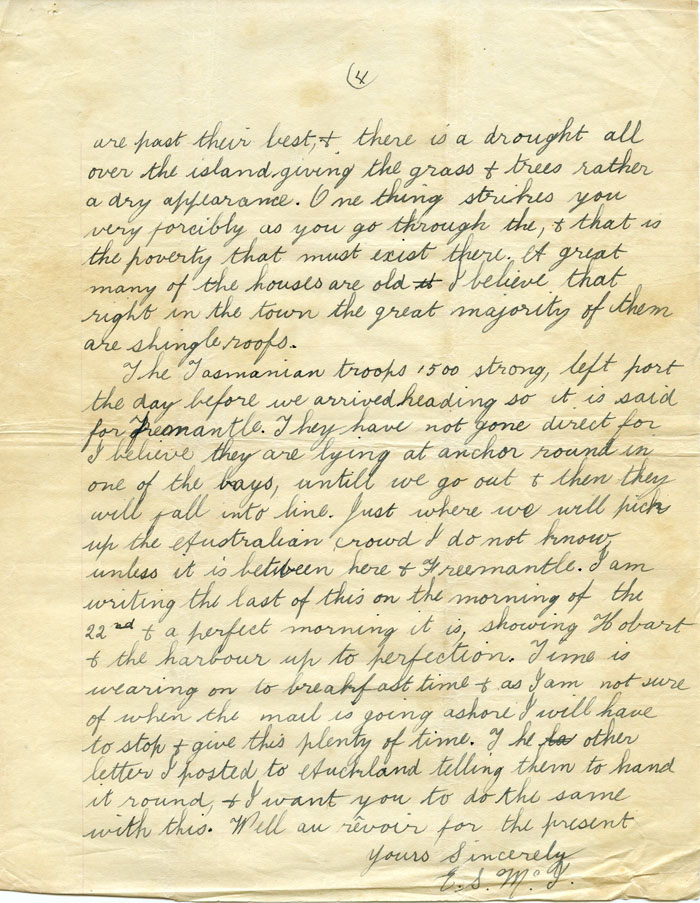 (4
are past their best, & there is a drought all
over the island giving the grass & trees rather
a dry appearance. One thing strikes you
very forcibly as you go through the, & that is
the poverty that must exist there. A great
many of the houses are old I believe that
right in the town the great majority of them
are shingle roofs.
The Tasmanian troops 1500 strong, left port
the day before we arrived heading so it is said
for Freemantle. They have not gone direct for
I believe they are lying at anchor round in
one of the bays, untill we go out & then they
will fall into line. Just where we will pick
up the Australian crowd I do not know,
unless it is between here & Freemantle. I am
writing the last of this on the morning of the
22nd & a perfect morning it is, showing Hobart
& the harbour up to perfection. Time is
wearing on to breakfast time & as I am not sure
of when the mail is going ashore I will have
to stop & give this plenty of time. The other
letter I posted to Auckland telling them to hand
it round, & I want you to do the same
with this. Well au rêvoir for the present
Yours Sincerely
E. S. Mc